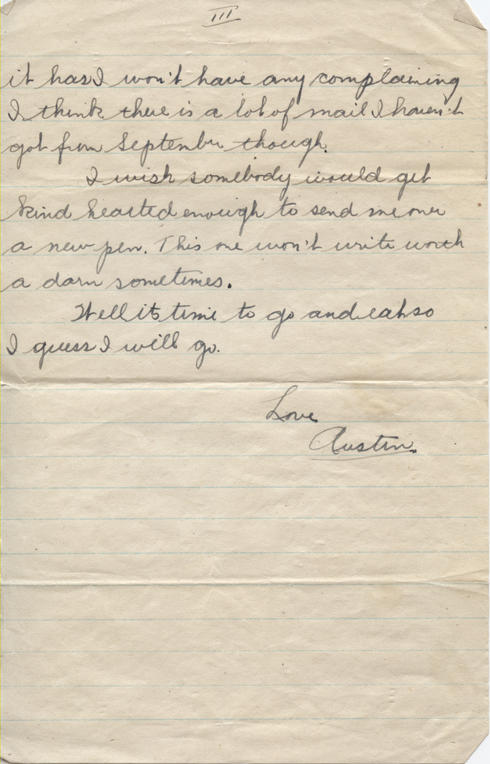 III
it has I won't have any complaining
I think there is a lot of mail I haven't
got from September though.
I wish somebody would get
kind hearted enough to send me over
a new pen. This one won't write worth
a darn sometimes.
Well its time to go and eat so
I guess I will go.
Love
Austin.